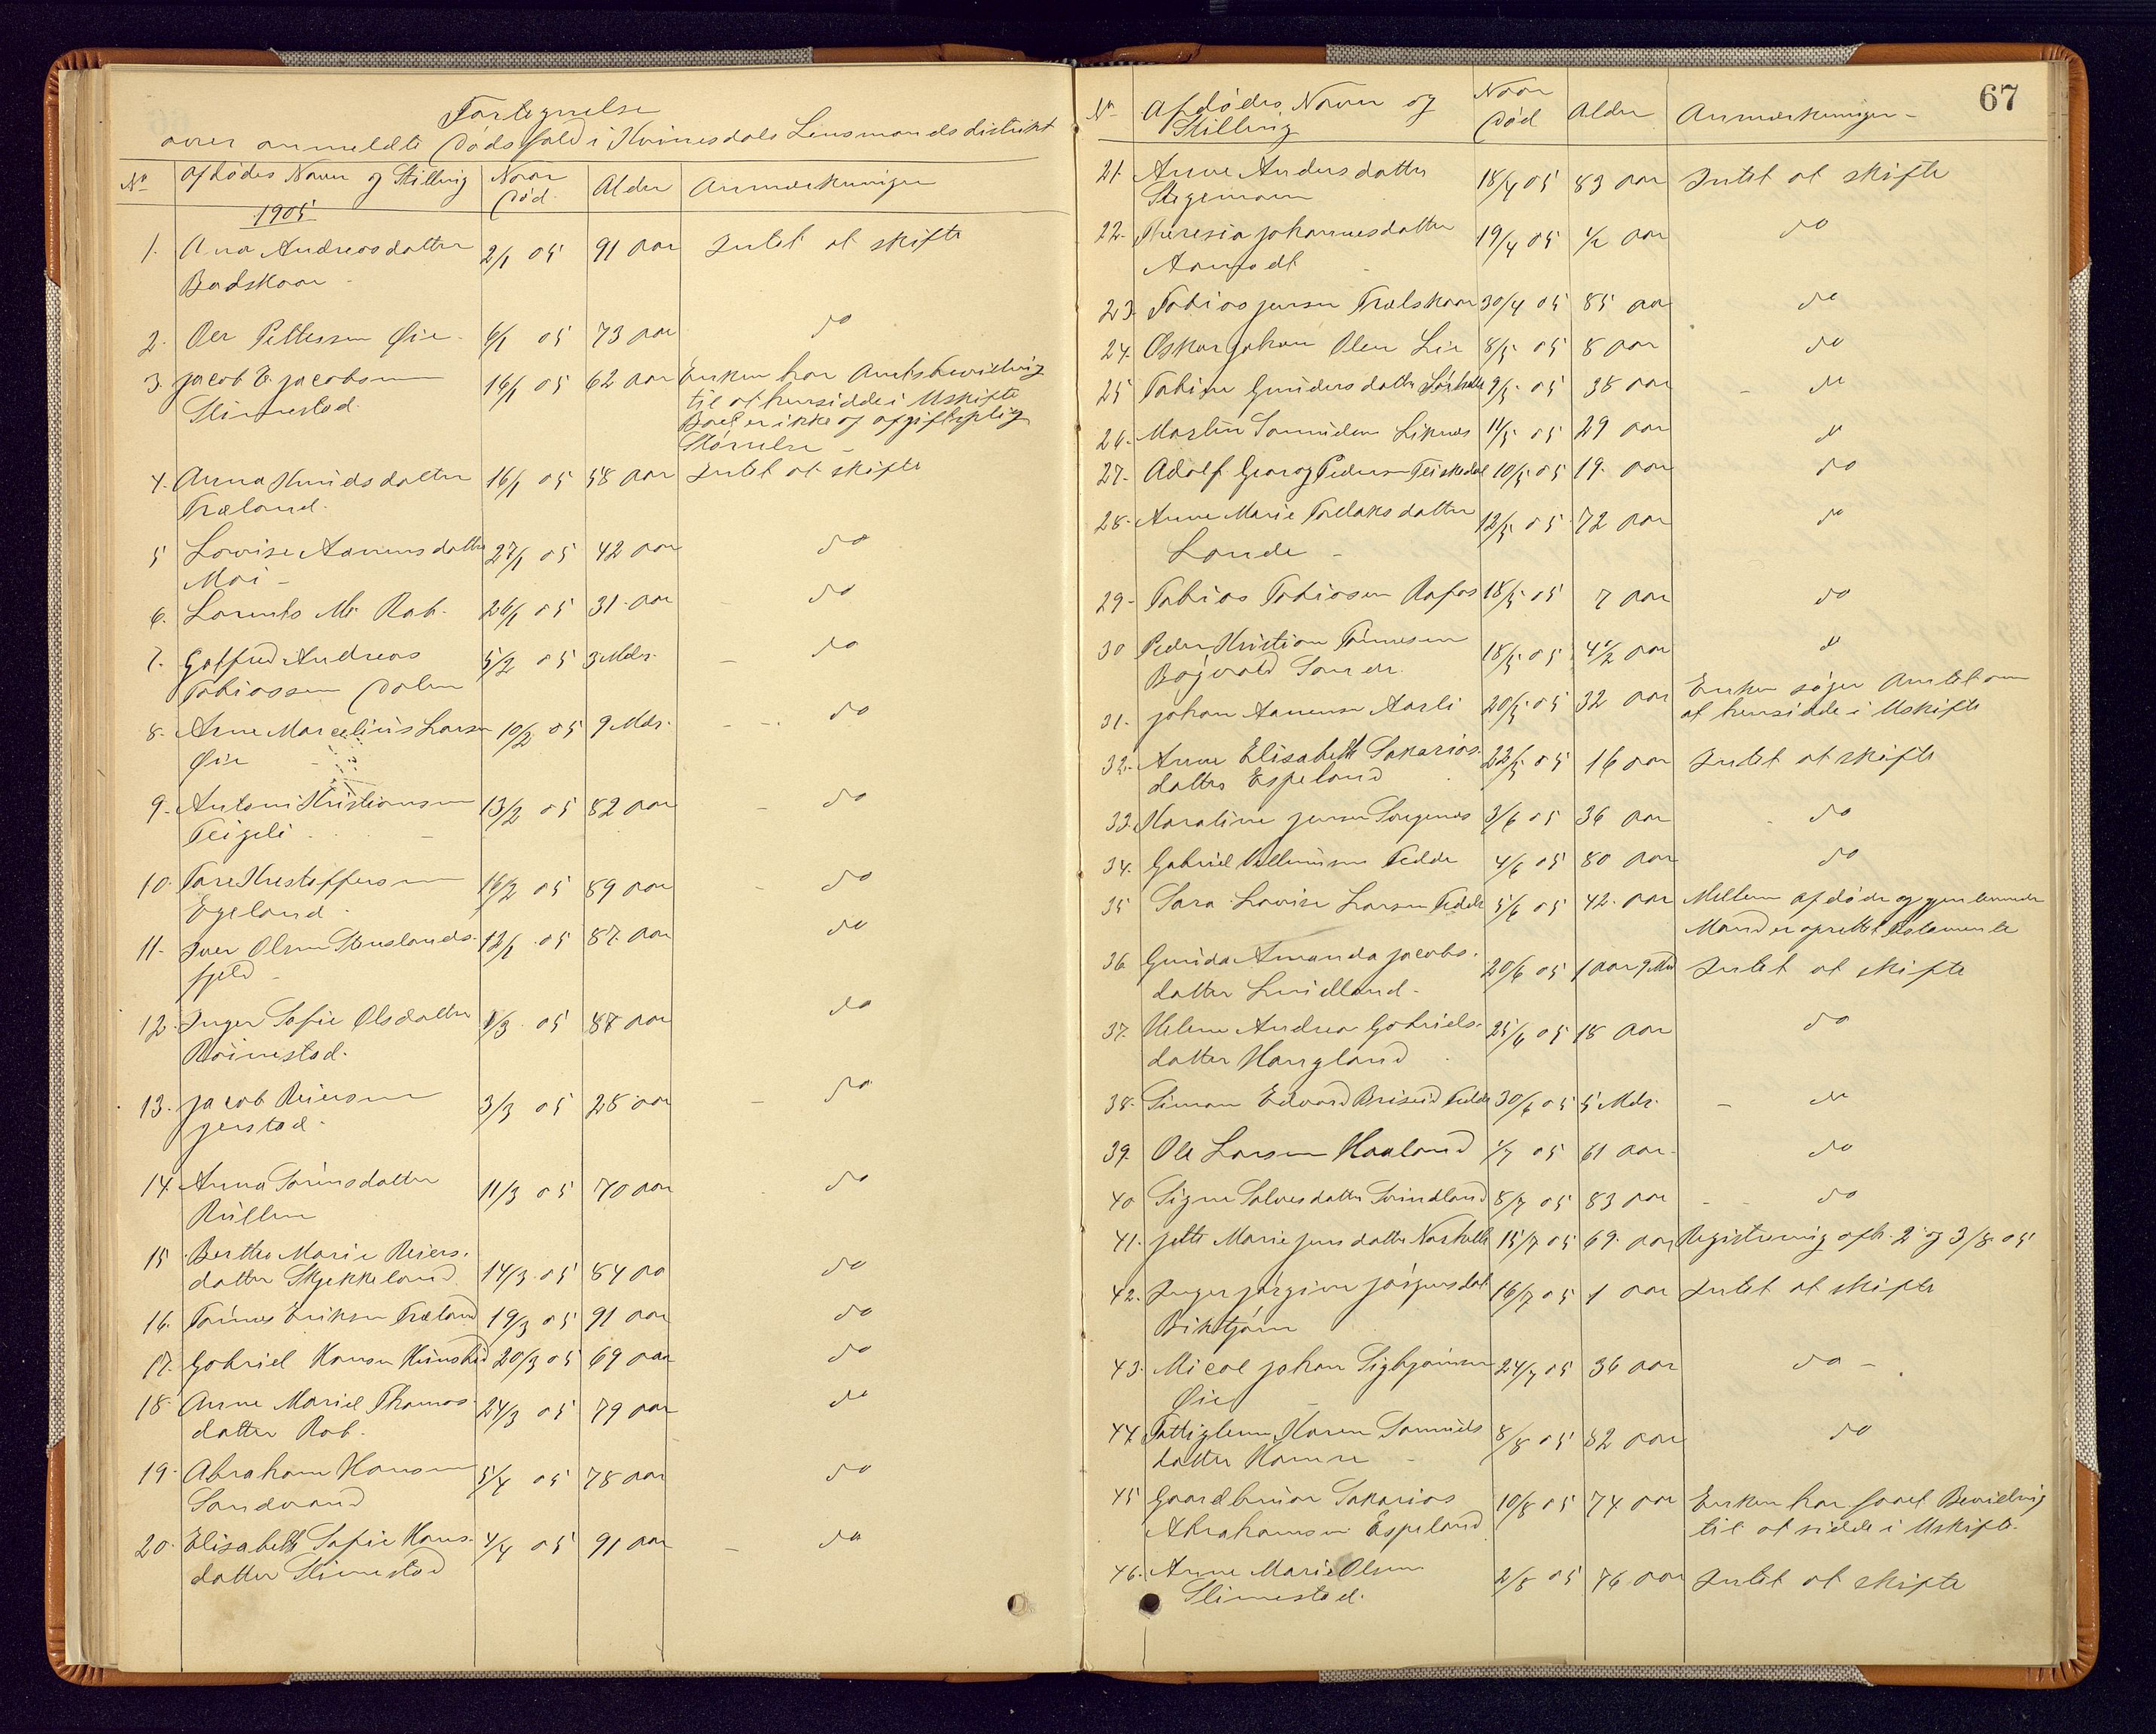 Fortegnelse
over anmeldte Dødsfald i Kvinesdals Lensmandsdistrikt
No Afdødes Navn og Stilling Naar Død Alder Anmærkninger
1905
1. Ana Andreasdatter 2/1 05 91 aar Intet at skifte
Badskaar
2. Per Pettersen Øie 6/1 05 73 aar do
3. Jacob E. Jacobsen 16/1 05 62 aar Enken har Amtsbevilling
Slimestad. til at hensidde i Uskifte
Boet er ikke af afgiftspligtig
Størrelse
4. Anna Knudsdatter 16/1 05 58 aar Intet at skifte
Træland.
5 Lovise Aanensdatter 27/1 05 42 aar do
Moi
6. Lorents M. Rab. 26/1 05 31 aar do
7. Gotfred Andreas 5/2 05 3 Mdr. do
Tobiassen Dalen
8. Arne Marcelius Larsen 10/2 05 9 Mdr. do
Øie
9. Antoni Kristiansen 13/2 05 82 aar do
Teigeli
10. Tore Kristoffersen 16/2 05 89 aar do
Egeland
11. Iver Olsen 12/1 05 87 aar do
fjeld
12. Inger Sofie Olsdatter 1/3 05 87 aar do
Röinestad.
13. Jacob Reiersen 3/3 05 25 aar do
Jerstad.
14. Anna Sörensdatter 11/3 05 70 aar do
Rullen
15 Berthe Marie Reiers-
datter Skjekkeland 14/3 05 84 aa do
16. Tönnes Eriksen Træland 19/3 05 91 aar do
17. Gabriel Hansen 20/3 05 69 aar do
18. Anne Mariel Thomas- 24/3 05 79 aar do
datter Rab.
19. Abraham Hansen 5/4 05 78 aar do
Sandvand
20. Elisabeth Sofie Hans- 4/4 05 91 aar do
datter Slimestad
67
No Afdødes Navn og Stilling Naar Død Alder Anmærkninger
21. Anne Andersdatter 18/4 05 83 aar Intet at skifte
Stegemoen
22. Theresia Johannesdatter 19/4 05 1/2 aar do
Aamodt
23. Tobias Jensen Trælskaar 30/4 05 85 aar do
24. Oskar Johan Olsen Lie 8/5 05 8 aar do
25 Tobine Gundersdatter 9/5 05 38 aar do
26. Martin Samuelsen Liknes 11/5 05 29 aar do
27. Adolf Georg Pedersen 10/5 05 19 aar do
28. Anne Marie Torlaksdatter 12/5 05 72 aar do
Lande
29. Tobias Tobiasen Rafos 18/5 05 7 aar do
30 Peder Kristian Tönnesen 18/5 05 4 1/2 aar do
Bøgvald
31. Johan Aanensen Aasli 20/5 05 32 aar Enken søger Amtet om
at hensidde i Uskifte
32. Anne Elisabeth Sakarias- 22/5 05 16 aar Intet at skifte
datter Espeland
33. Karoline Jensen 3/6 05 36 aar do
34. Gabriel Vellemsen Fedde 4/6 05 80 aar do
35 Sara Lovise Larsen Fedde 5/6 05 42 aar Mellem afdøde og gjenlevende
Mand er oprettet Testamente
36 Gunda Amanda Jacobs- 20/6 05 1 aar 9 Md Intet at skifte
datter
37. Helene Andrea Gabriels- 25/6 05 18 aar do
datter Haugland
38. Simon Edvard Briseid Fedde 30/6 05 5 Mdr. do
39. Ole Larsen Haaland 1/7 05 61 aar do
40 Signe Salvesdatter Svindland 8/7 05 83 aar do
41. Jette Marie Jensdatter 15/7 05 69 aar Registrering afh. 2 og 3/8 05
42. Inger Jørgine Jørgensdat 16/7 05 1 aar Intet at skifte
Birktjørn
43. Micael Johan Sigbjørnsen 24/7 05 36 aar do
Øie
44. Fattiglem Karen Samuels 8/8 05 82 aar do
datter Hamre
45 Gaardbruger Sakarias 10/8 05 74 aar Enken har faaet Bevilling
Abrahamsen Espeland til at sidde i Uskifte.
46. Anne Marie Olsen 2/8 05 76 aar Intet at skifte
Slimestad.